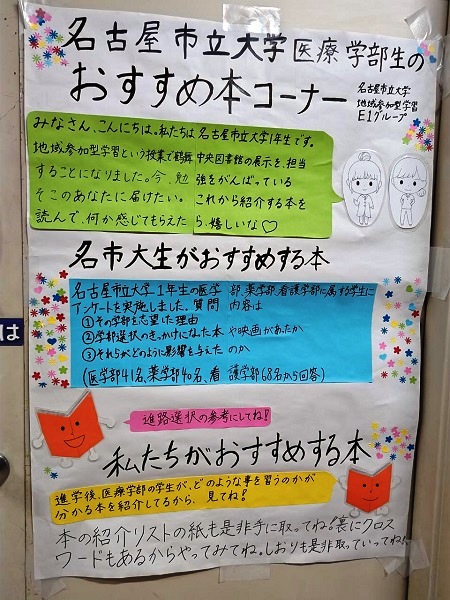 名古屋市立大学医療学部生の
おすすめ本コーナー
名古屋市立大学
地域参加型学習
E1グループ
みなさん、こんにちは。私たちは名古屋市立大学1年生です。
地域参加型学習という授業で鶴舞中央図書館の展示を、担当
することになりました。今、勉強をがんばっている
そこのあなたに届けたい。これから紹介する本を
読んで、何か感じてもらえたら、嬉しいな♡
名市大生がおすすめする本
名古屋市立大学1年生の医学部、薬学部、看護学部に属する学生に
アンケートを実施しました。質問内容は
①その学部を志望した理由
②学部選択のきっかけになった本や映画があたか
③それらがどのように影響を与えたのか
(医学部41名、薬学部40名、看護学部68名から回答)
進路選択の参考にしてね!
私たちがおすすめする本
進学後、医療学部の学生が、どのような事を習うのかが
分かる本を紹介してるから、見てね!
本の紹介リストの紙も是非手に取ってね!裏にクロス
ワードもあるからやってみてね。しおりも是非取っていってね!
は